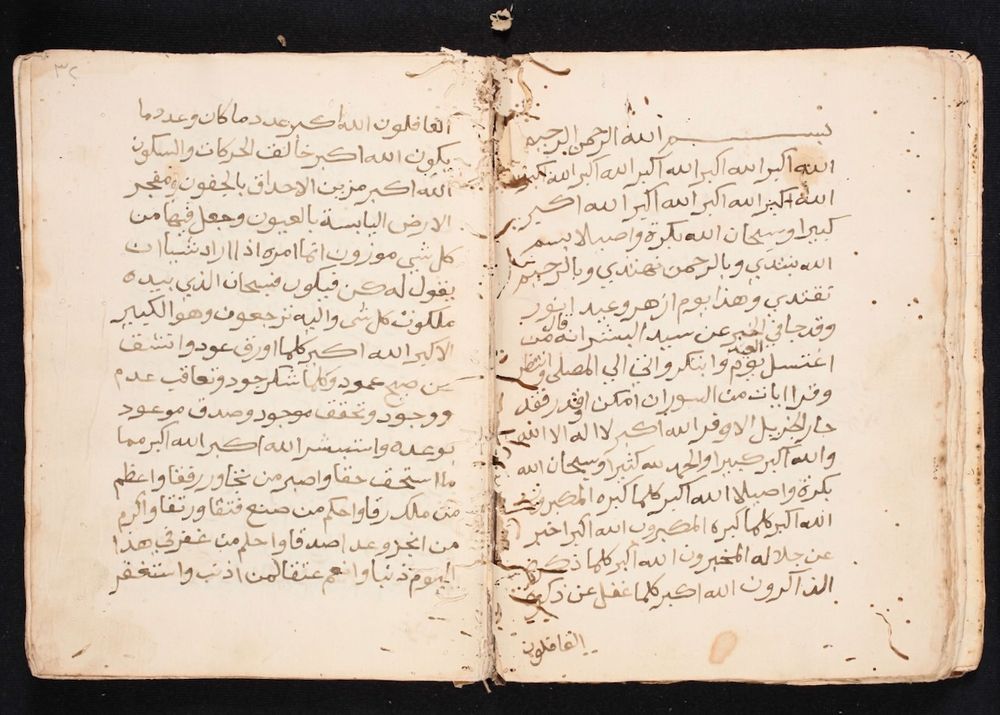 بسم الله الرحمن الرحيم
الله اكبر الله اكبر الله اكبر الله اكبر الله اكبر
الله اكبر الله اكبر الله اكبر الله اكبر
كبيرا وسبحان الله بكرة واصيلا بسم
الله نبتدي وبالرحمن نهتدي وبالرحيم
نقتدي وهذا يوم ازهر وعيد انور
وقد جا في الخبر عن سيد البشر انه قال من
اغتسل يوم العيد وابتكر واتي الي المصلي وانتظر
وقرا ايات من السور ان امكن او قدر فقد
حاز الجزيل الاوفر الله اكبر لا اله الا الله
والله اكبر كبيرا والحمد لله كثيرا وسبحان الله
بكرة واصيلا الله اكبر كلما كبره المكبرون
الله اكبر كلما كبره المكبرون الله اكبر اخبر
عن جلاله المخبرون الله اكبر كلما ذكره
الذاكرون الله اكبر كلما غفل عن ذكره
الغافلون
٣٢
الغافلون الله اكبر عدد ما كان وعدد ما
يكون الله اكبر خالق الحركات والسكون
الله اكبر مزين الاحداق بالجفون ومفجر
الارض اليابسة بالعيون وجعل فيها من
كل شي موزون انما امره اذا اراد شيا ان
يقول له كن فيكون فسبحان الذي بيده
ملكوت كل شي واليه ترجعون وهو الكبير
الاكبر الله اكبر كلما اورق عود وانشق
عن صبح عمود وكلما شكر جود وتعاقب عدم
ووجود وتحقق موجود وصدق موعود
بوعده واستبشر الله اكبر الله اكبر مما
ما استحق حقا واصبر من تجاوز رفقا واعظم
من ملك رقا واحكم من صنع فتقا ورتقا واكرم
من انجز وعدا صدقا واحلم من غفر في هذا
اليوم ذنبا وانعم عتقا لمن اذنب واستغفر